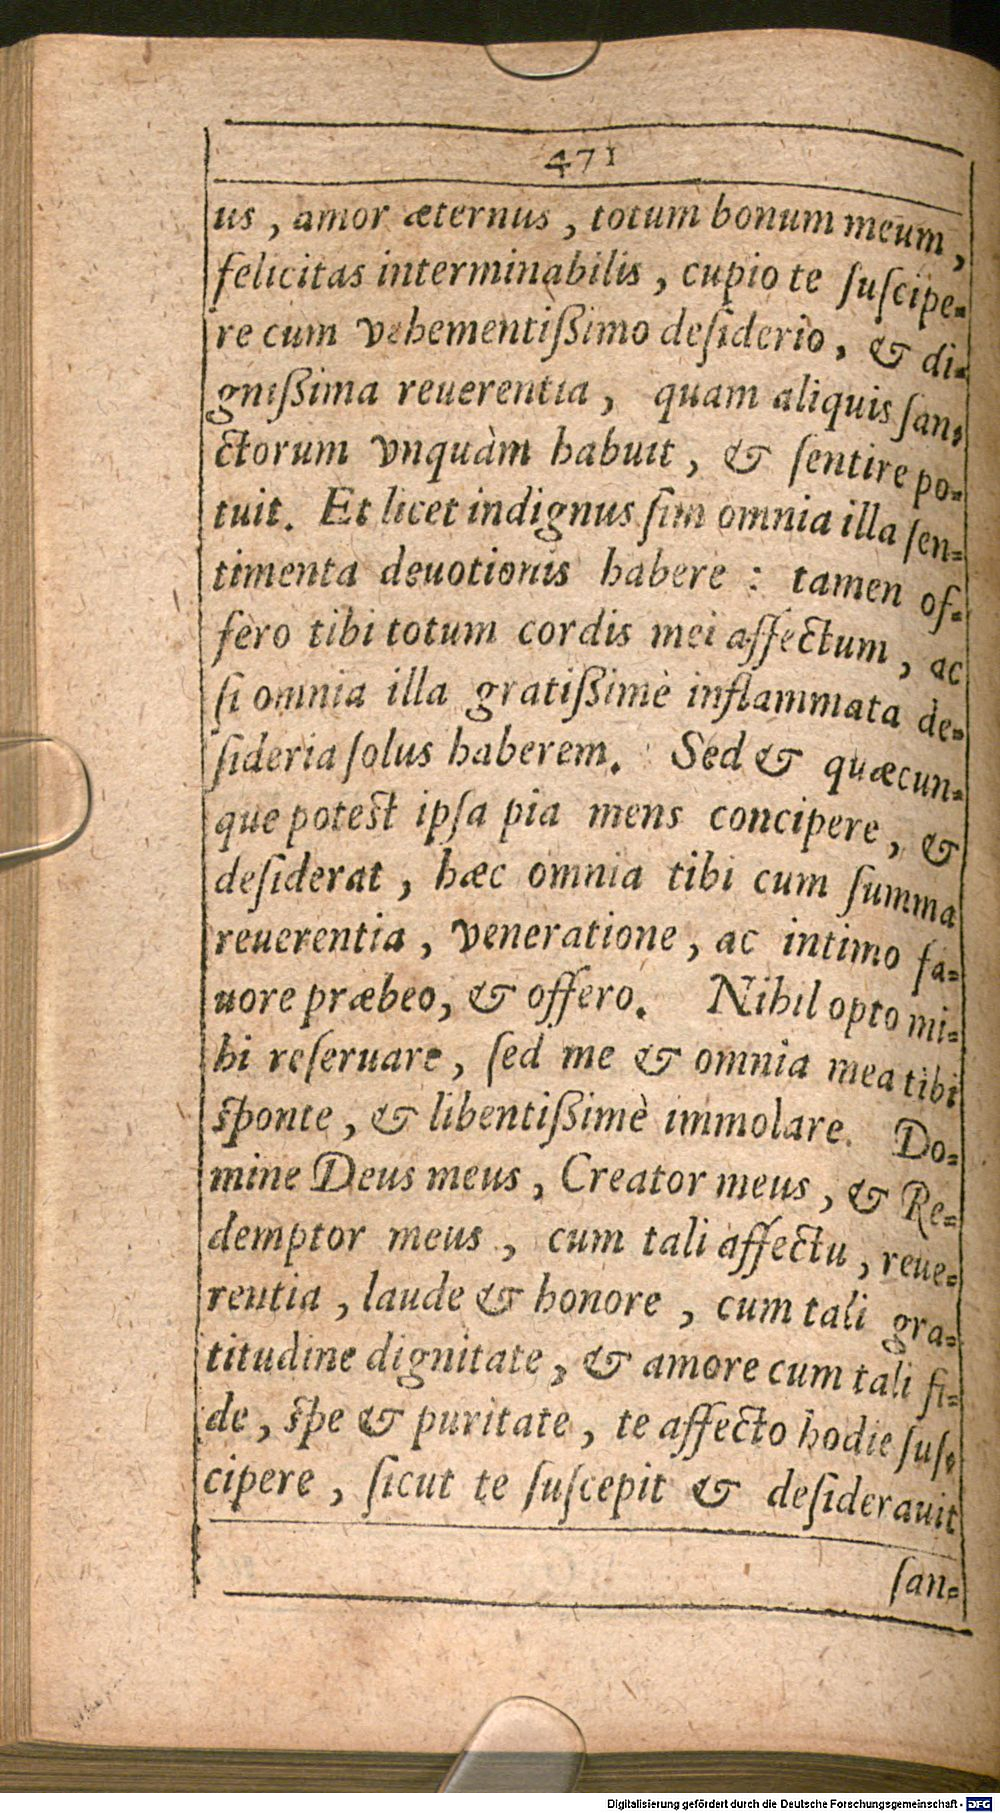 471
us, amor æternus, totum bonum meum,
felicitas interminabilis, cupio te ſuſcipe-
re cum vehementiſsimo deſiderio, & di-
gniſsima reuerentia, quam aliquis ſan-
ctorum vnquàm habuit, & ſentire po-
tuit. Et licet indignus ſim omnia illa ſen-
timenta deuotionis habere : tamen of-
fero tibi totum cordis mei affectum, ac
ſi omnia illa gratiſsimè inflammata de-
ſideria ſolus haberem. Sed & quæcun-
que poteſt ipſa pia mens concipere, &
deſiderat, hæc omnia tibi cum ſumma
reuerentia, veneratione, ac intimo fa-
uore præbeo, & offero. Nihil opto mi-
hi reſeruare, ſed me & omnia mea tibi
ſponte, & libentiſsimè immolare. Do-
mine Deus meus, Creator meus, & Re-
demptor meus, cum tali affectu, reue-
rentia, laude & honore, cum tali gra-
titudine dignitate, & amore cum tali fi-
de, ſpe & puritate, te affecto hodie ſuſ-
cipere, ſicut te ſuſcepit & deſiderauit
ſan-
Digitalisierung gefördert durch die Deutsche Forschungsgemeinschaft - DFG